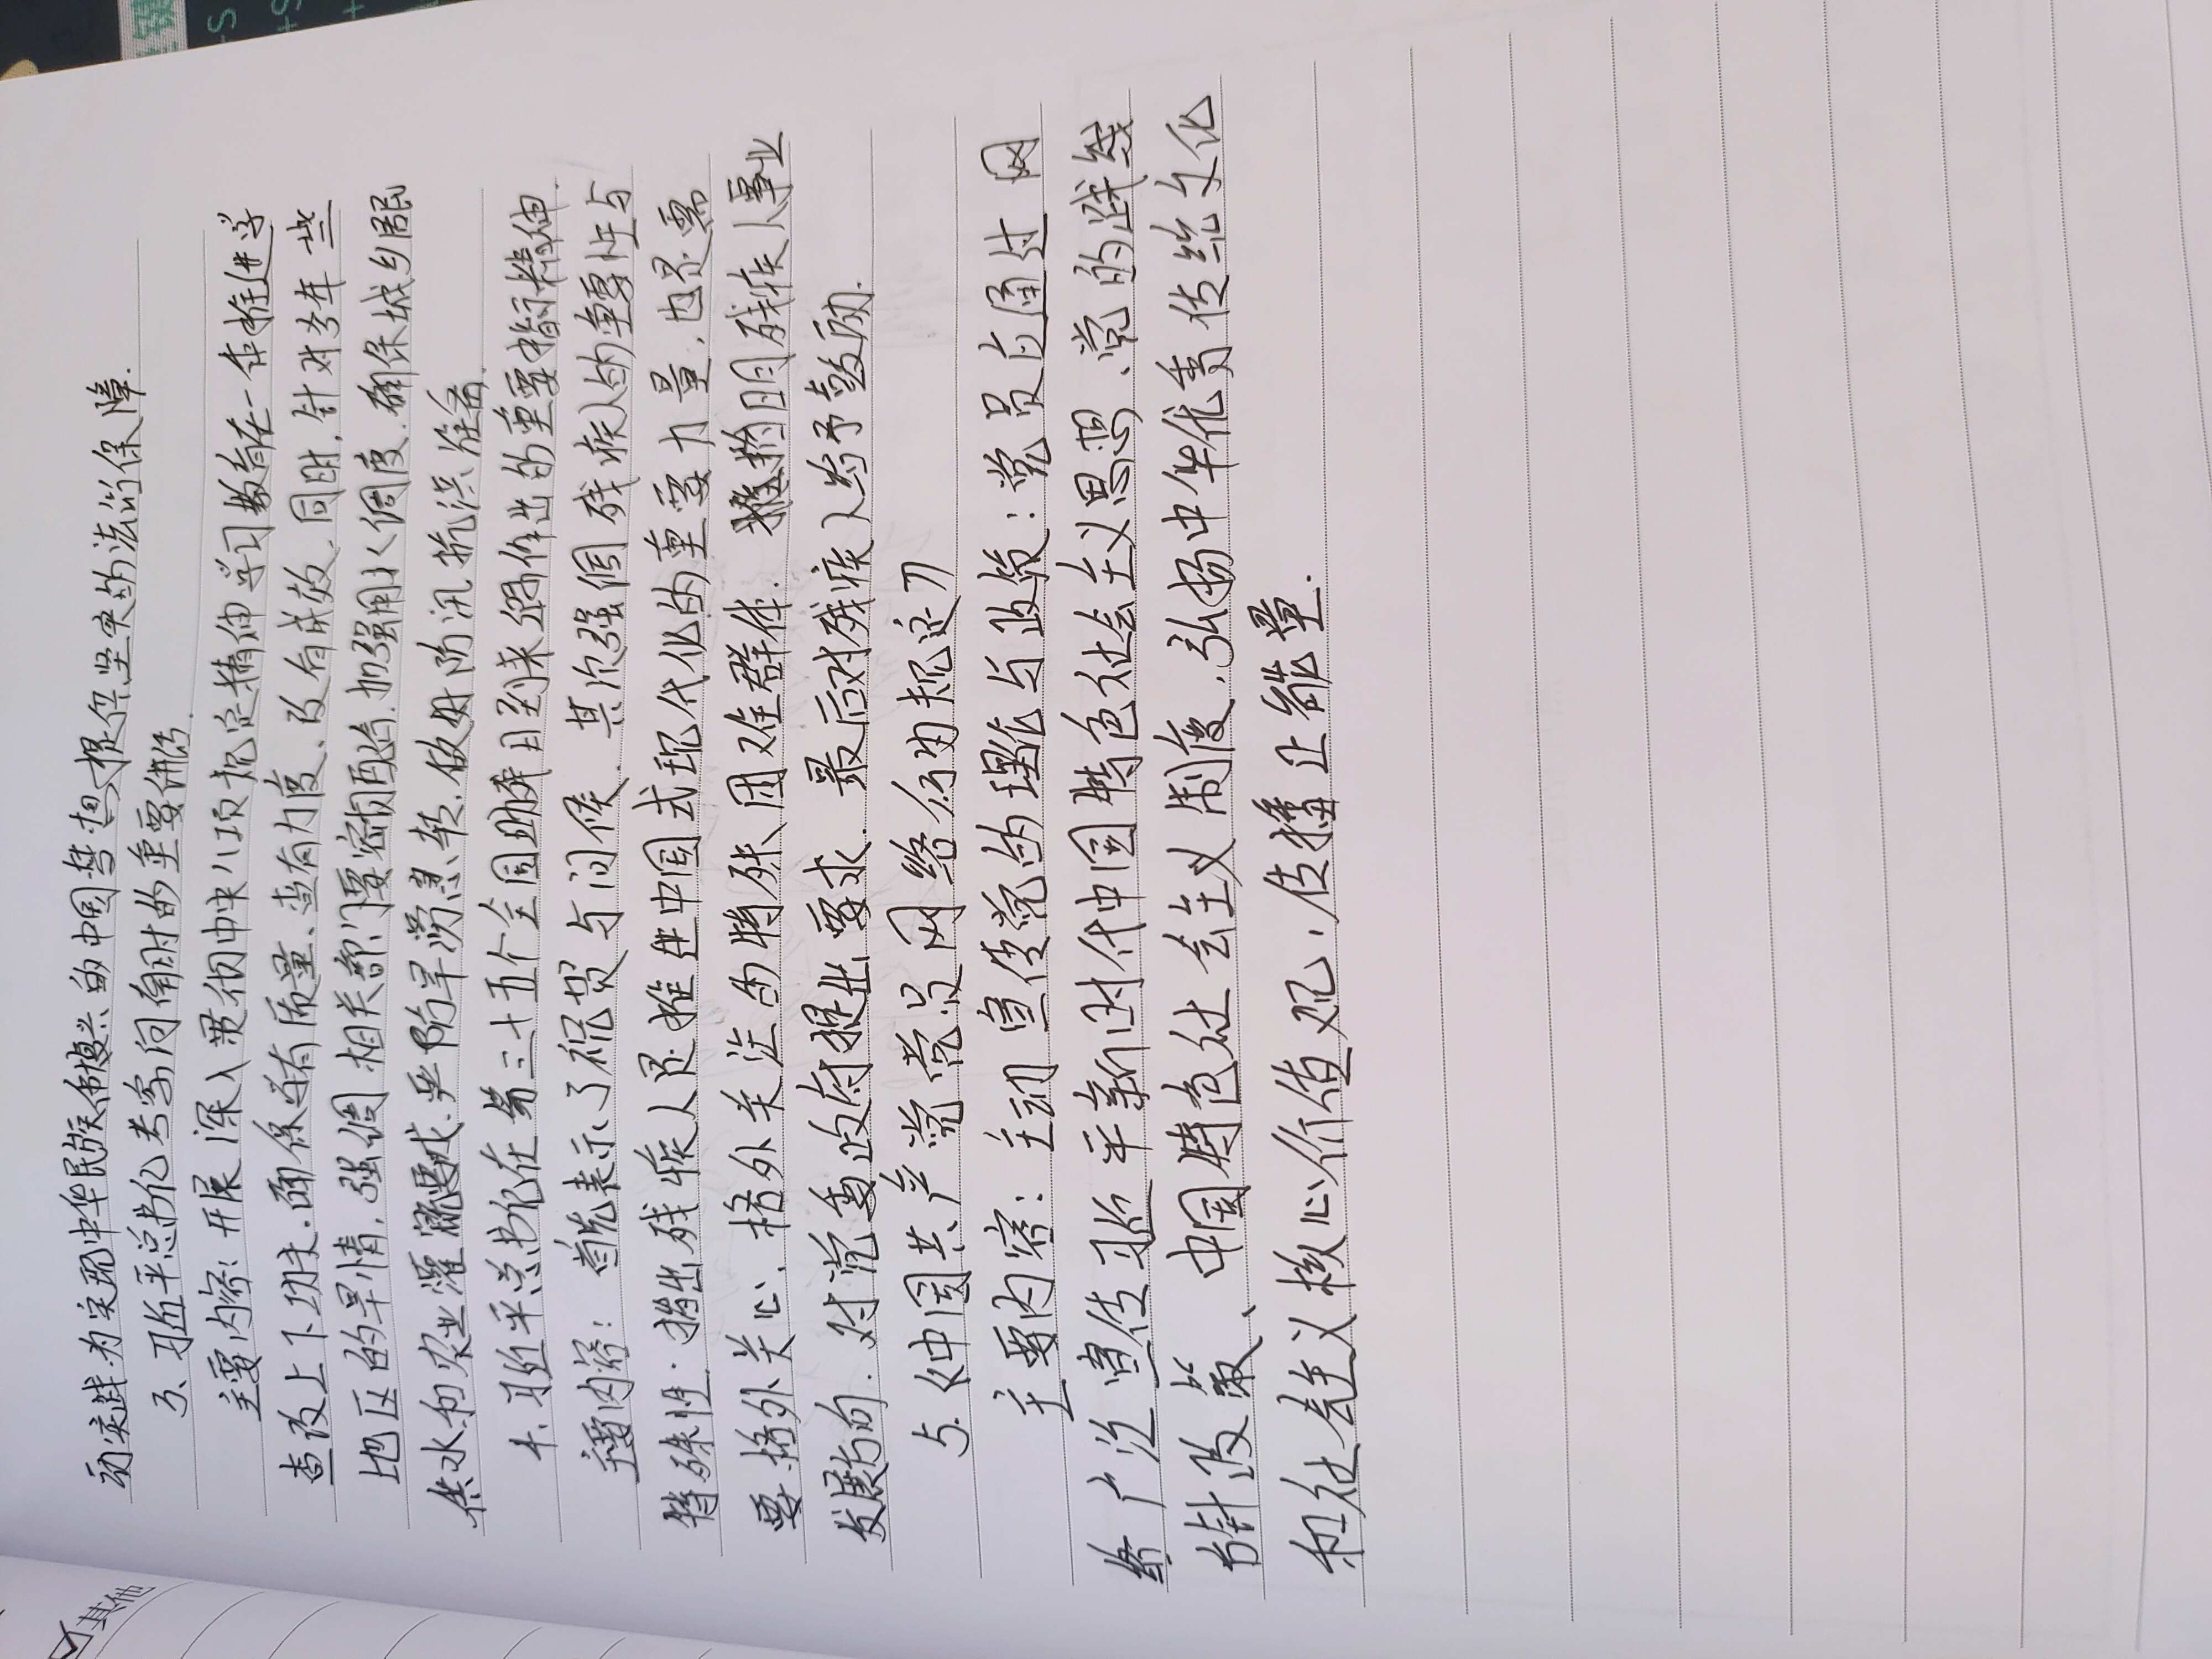 动实践为实现中华民族伟大复兴的中国梦想提供坚实的法治保障.
3、习近平总书记考察河南时的重要讲话.
主要内容：开展深入贯彻中央八项规定精神学习教育在一体推进学
查改上下功夫.确保学有质量、查有力度、改有成效.同时.针对今年一些
地区的旱情.强调相关部门要密切配合.加强用水调度.确保城乡居民
供水和农业灌溉要求.严防旱涝急转.做好防汛抗洪准备.
4、习近平总书记在第三十五个全国助残日到来之际作出的重要指示精神.
主要内容：首先表示了祝贺与问候.其次强调残疾人的重要性与
特殊性.指出残疾人是推进中国式现代化的重要力量.也是需
要格外关心、格外关注的特殊困难群体.指明残疾人事业
发展方向.对党委政府提出要求.最后对残疾人给予鼓励.
5.《中国共产党党员网络行为规定》
主要内容：主动宣传党的理论与政策：党员应通过网
络广泛宣传习近平新时代中国特色社会主义思想、党的路线
方针政策、中国特色社会主义制度，弘扬中华优秀传统文化
和社会主义核心价值观，传播正能量.
其他